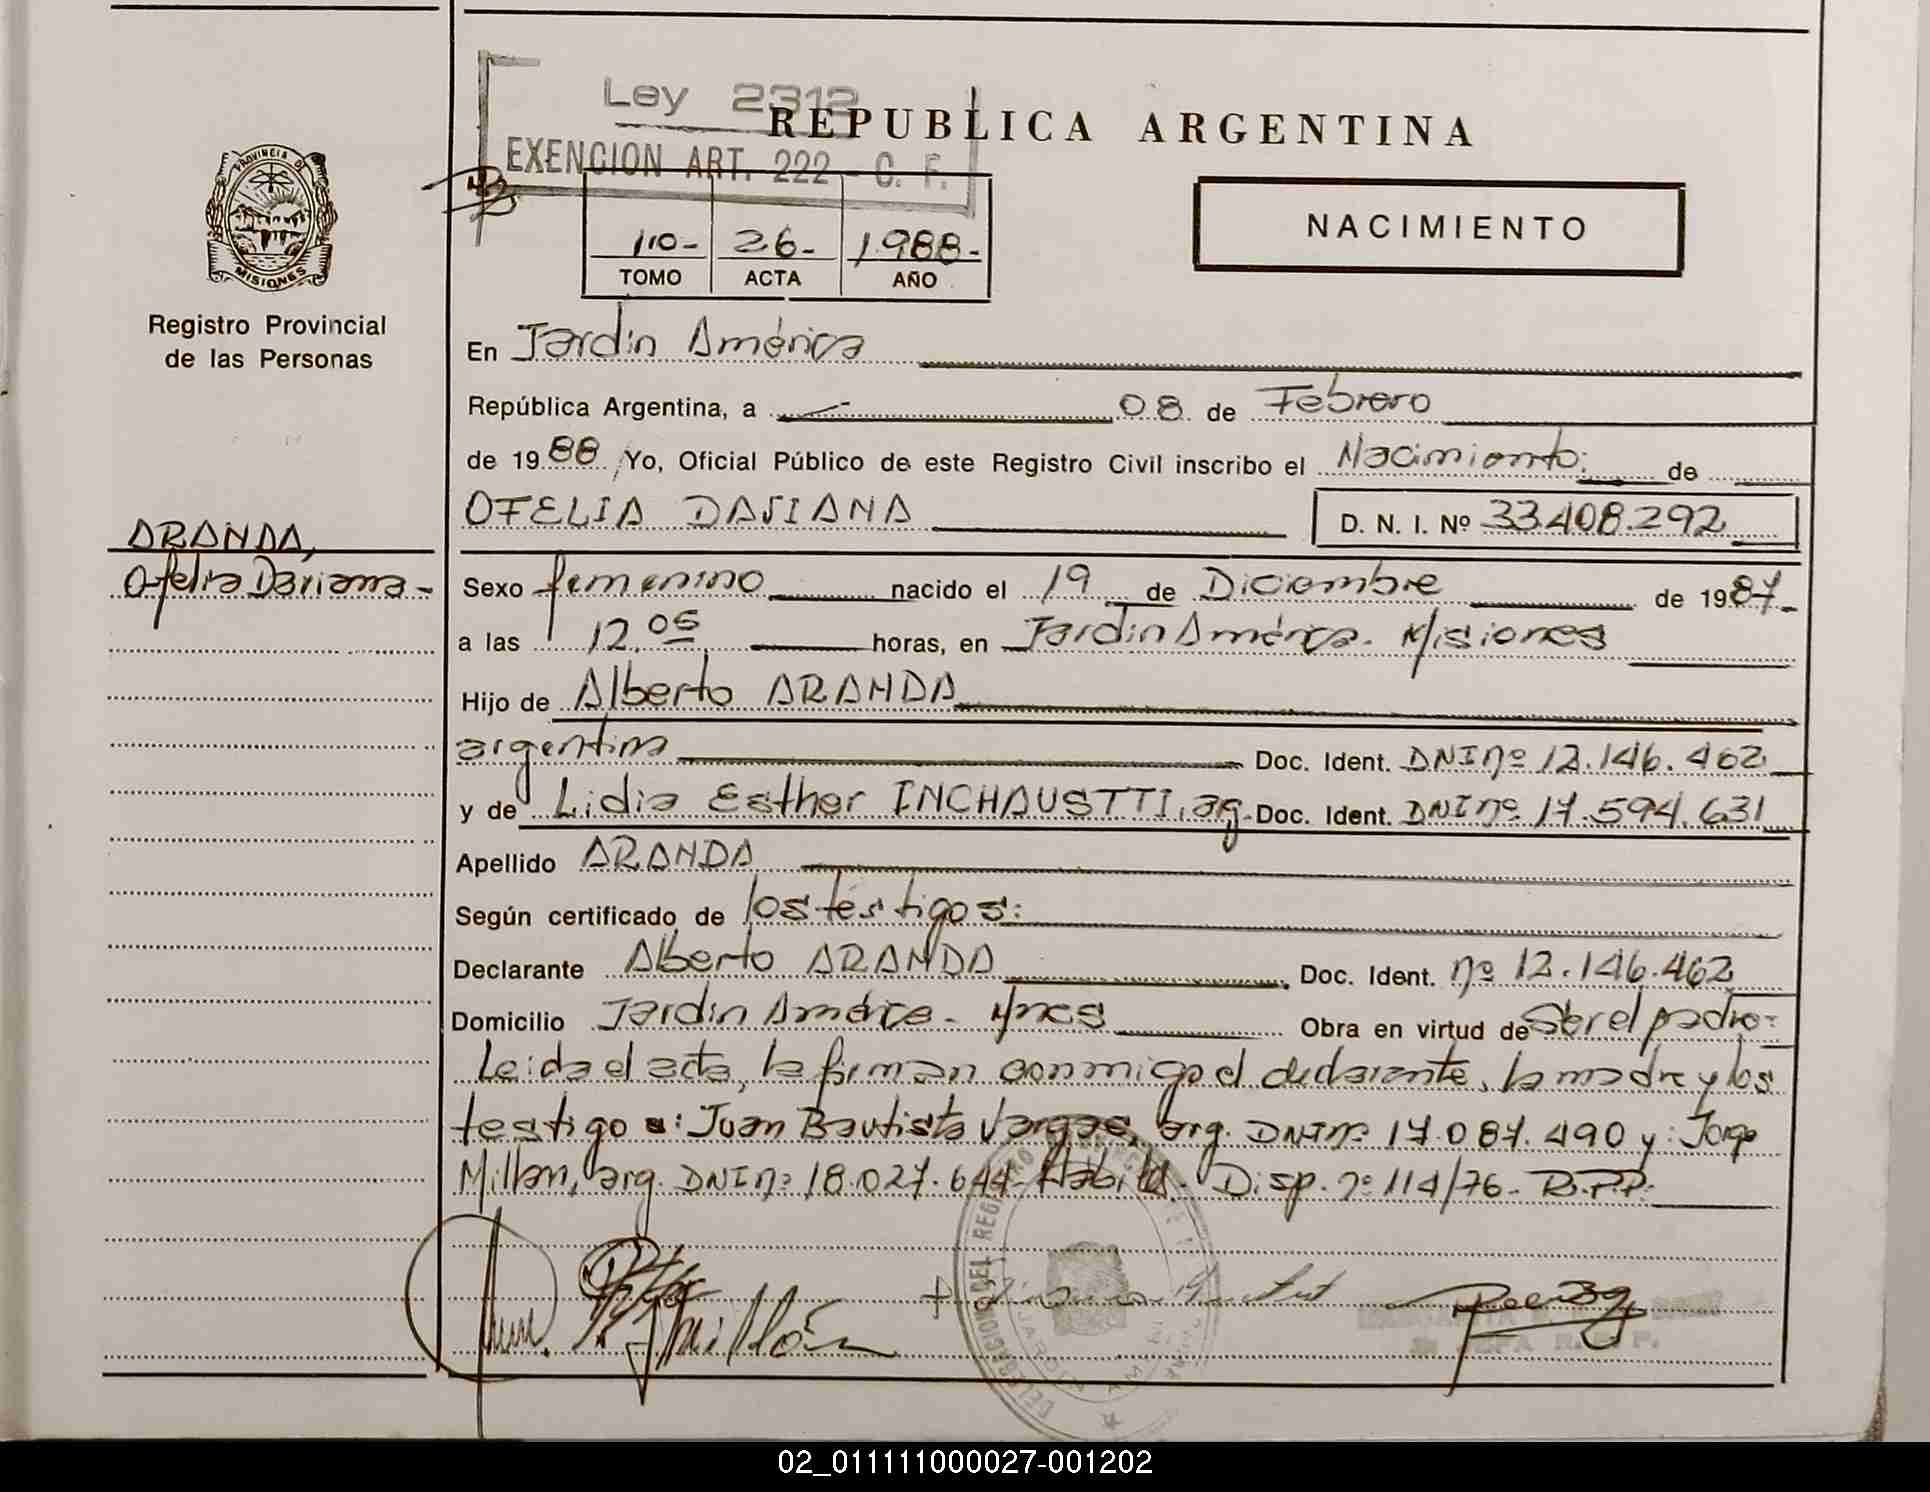 Ley 2312
REPUBLICA ARGENTINA
EXENCION ART. 222 - C. F.
NACIMIENTO
110- 26- 1988-
TOMO ACTA AÑO
PROVINCIA DE
MISIONES
Registro Provincial
de las Personas
En Jardin América
República Argentina, a 08 de Febrero
de 1988 Yo, Oficial Público de este Registro Civil inscribo el Nacimiento: de
OFELIA DARIANA D. N. I. Nº 33.408.292
ARANDA,
Ofelia Dariana-
Sexo femenino nacido el 19 de Diciembre de 1987-
a las 12.05 horas, en Jardin América- Misiones
Hijo de Alberto ARANDA
argentino Doc. Ident. DNI nº 12.146.462
y de Lidia Esther INCHAUSTTI, arg. Doc. Ident. DNI nº 17.594.631
Apellido ARANDA
Según certificado de los testigos:
Declarante Alberto ARANDA Doc. Ident. nº 12.146.462
Domicilio Jardin América- Mnes Obra en virtud de Ser el padre-
Leída el acta, la firman conmigo el declarante, la madre y los
testigos: Juan Bautista Vargas, arg. DNI nº 17.087.490 y: Jorge
Millan, arg. DNI nº 18.027.644- Habilit. Disp. nº 114/76- R.P.P.
DELEGACION DEL REGISTRO
Millán
02_011111000027-001202